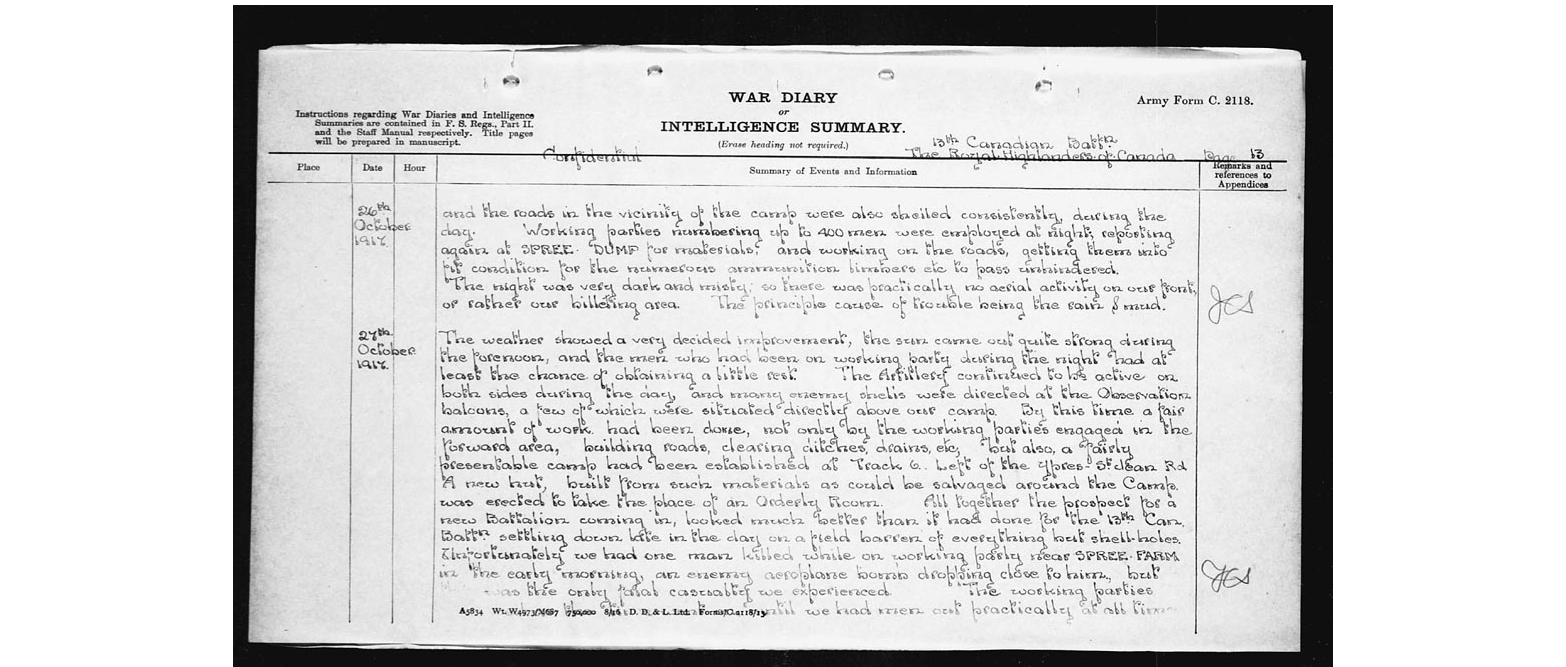 WAR DIARY
or
INTELLIGENCE SUMMARY.
(Erase heading not required.)
Army Form C. 2118.
Instructions regarding War Diaries and Intelligence
Summaries are contained in F. S. Regs., Part II.
and the Staff Manual respectively. Title pages
will be prepared in manuscript.
Confidential
13th Canadian Battn
The Royal Highlanders of Canada
Page 13
Place
Date
Hour
Summary of Events and Information
Remarks and
references to
Appendices
26th
October
1917.
and the roads in the vicinity of the camp were also shelled consistently, during the
day. Working parties numbering up to 400 men were employed at night, reporting
again at SPREE DUMP for materials, and working on the roads, getting them into
fit condition for the numerous ammunition limbers etc to pass unhindered.
The night was very dark and misty, so there was practically no aerial activity on our front,
or rather our billeting area. The principle cause of trouble being the rain & mud.
JCS
27th
October
1917.
The weather showed a very decided improvement, the sun came out quite strong during
the forenoon, and the men who had been on working party during the night had at
least the chance of obtaining a little rest. The Artillery continued to be active on
both sides during the day, and many enemy shells were directed at the Observation
balcons, a few of which were situated directly above our camp. By this time a fair
amount of work had been done, not only by the working parties engaged in the
forward area, building roads, clearing ditches, drains, etc, but also, a fairly
presentable camp had been established at Track 6. Left of the Ypres- St Jean Rd
A new hut, built from such materials as could be salvaged around the Camp.
was erected to take the place of an Orderly Room. All together the prospect for a
new Battalion coming in, looked much better than it had done for the 13th Can.
Battn settling down late in the day on a field barren of everything but shell-holes.
Unfortunately we had one man killed while on working party near SPREE-FARM
in the early morning, an enemy aeroplane bomb dropping close to him, but
was the only fatal casualty we experienced. The working parties
until we had men out practically at all time
JCS
A5834 Wt. W4973/M687 750,000 8/16 D. D. & L. Ltd. Forms/C.2118/13